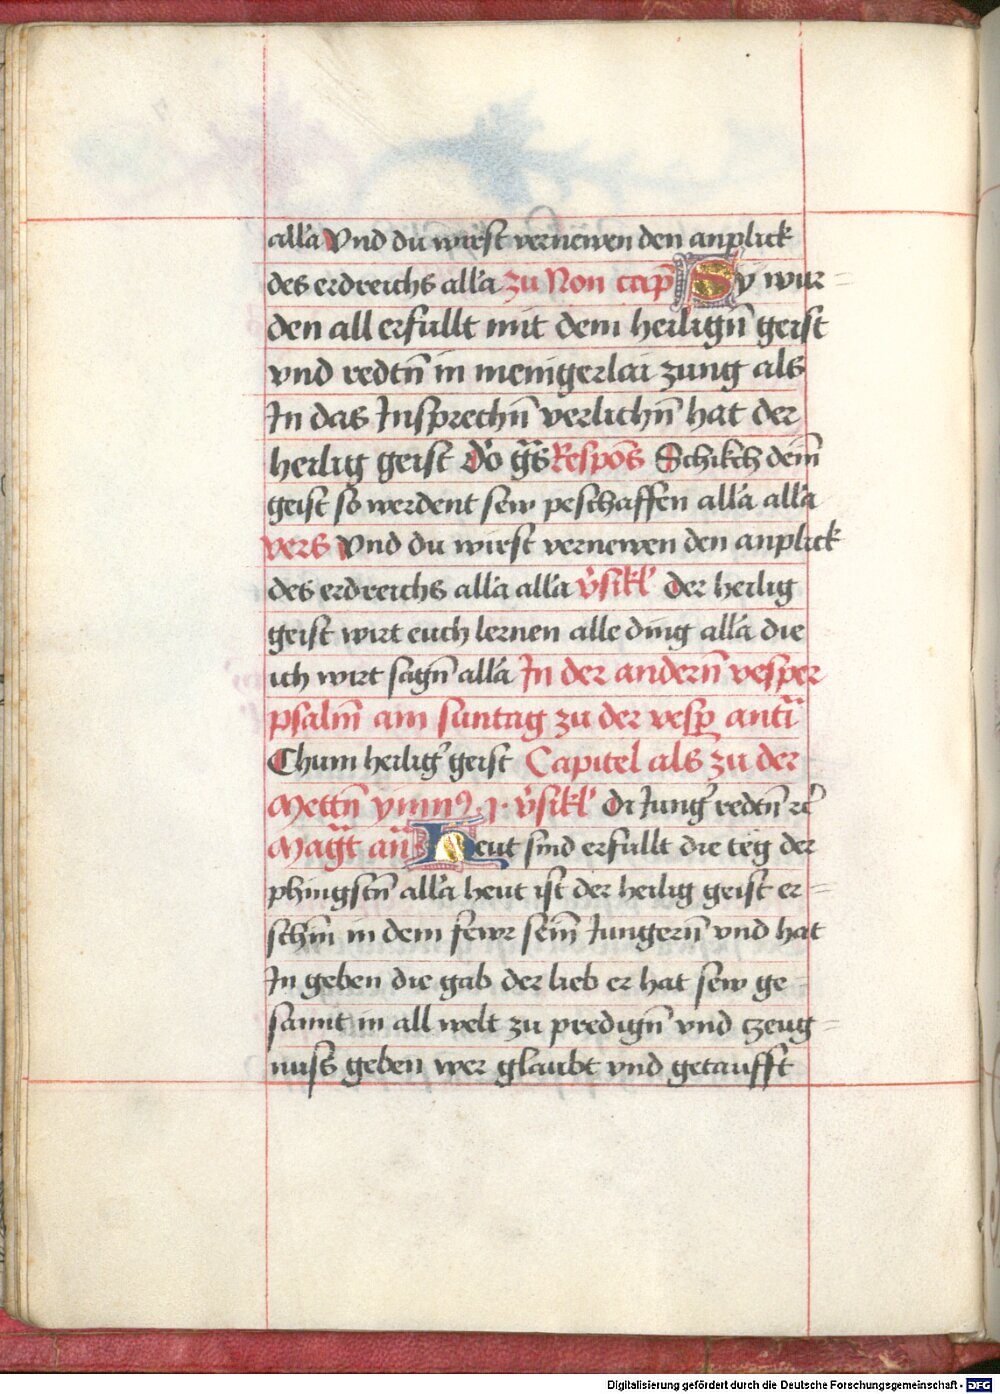 alla Vnd du wirst vernewen den anplick
des erdreichs alla zu Non cap̄ Sy wur=
den all erfullt mit dem heilign̄ geist
vnd redtn̄ in menigerlai zung als
In das Insprechn̄ verlichn̄ hat der
heilig geist Do gr̄s Respōs Schikch dein̄
geist so werdent sew peschaffen alla alla
vers Vnd du wirst vernewen den anplick
des erdreichs alla alla v̄sikl' der heilig
geist wirt euch lernen alle ding alla die
ich wirt sagn̄ alla In der andern̄ vesper
psalm̄ am suntag zu der vesp̱ anti
Chum heilig' geist Capitel als zu der
Mettn̄ ymn9 .j. v̄sikl' Di Jung' redtn̄ zc̄
Mag̃t an̄ Heut sind erfullt die teg der
phingstn̄ alla heut ist der heilig geist er=
schin̄ in dem fewr sein̄ Jungern̄ vnd hat
In geben die gab der lieb er hat sew ge=
sannt in all welt zu predign̄ vnd czeug=
nuss geben wer glaubt vnd getaufft
Digitalisierung gefördert durch die Deutsche Forschungsgemeinschaft - DFG